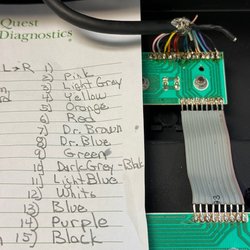 Quest
Diagnostics
L→R 1)
2) Pink
3) Light Grey
4) Yellow
5) Orange
6) Red
7) Dr. Brown
8) Dr. Blue
9) Green
10) Dark Grey - Black
11) Light Blue
12) White
13) Blue
14) Purple
15) Black